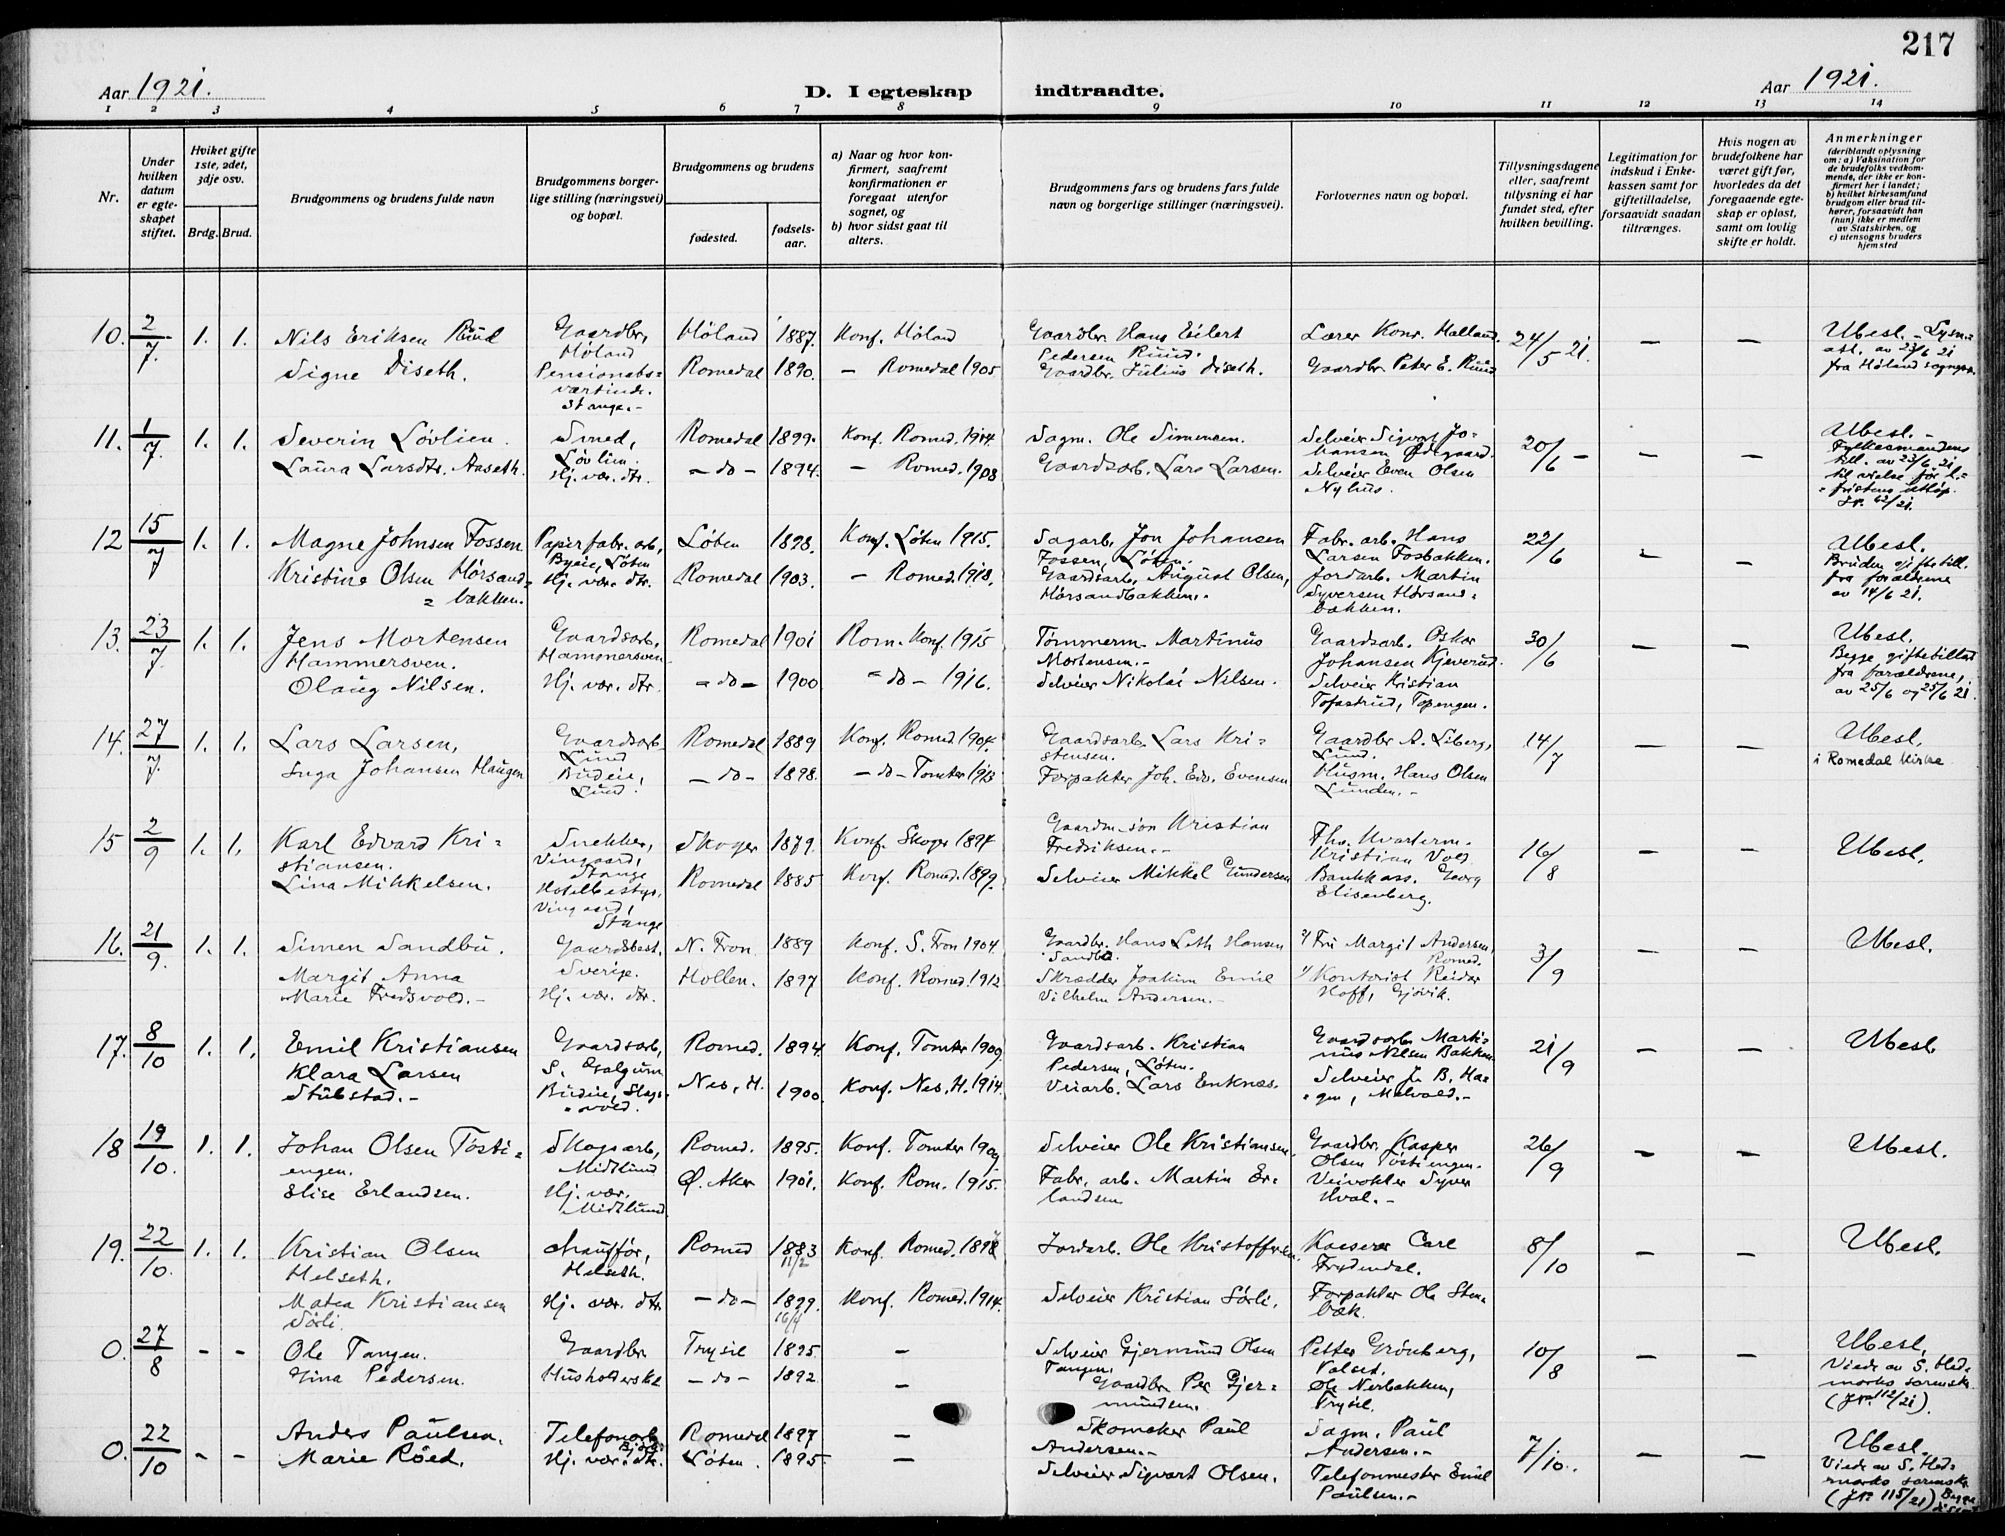 217
Aar 1921.
D. I egteskap indtraadte.
Aar 1921.
1 2 3 4 5 6 7 8 9 10 11 12 13 14
Nr.
Under hvilken datum er egteskapet stiftet.
Hviket gifte 1ste, 2det, 3dje osv.
Brdg. Brud.
Brudgommens og brudens fulde navn
Brudgommens borgerlige stilling (næringsvei) og bopæl.
Brudgommens og brudens
fødested.
fødselsaar.
a) Naar og hvor konfirmert, saafremt konfirmationen er foregaat utenfor sognet, og
b) hvor sidst gaat til alters.
Brudgommens fars og brudens fars fulde navn og borgerlige stillinger (næringsvei).
Forlovernes navn og bopæl.
Tillysningsdagene eller, saafremt tillysning ei har fundet sted, efter hvilken bevilling.
Legitimation for indskud i Enkekassen samt for giftetilladelse, forsaavidt saadan tiltrænges.
Hvis nogen av brudefolkene har været gift før, hvorledes da det foregaaende egteskap er opløst, samt om lovlig skifte er holdt.
Anmerkninger
(deriblandt oplysning om: a) Vaksination for de brudefolks vedkommende, der ikke er konfirmert her i landet; b) hvilket kirkesamfund brudgom eller brud tilhører, forsaavidt han (hun) ikke er medlem av Statskirken, og c) utensogns bruders hjemsted
10. 2/7. 1. 1. Nils Eriksen Ruud Gaardbr, Høland Høland 1887. Konf. Høland Gaardbr. Hans Eilert Pedersen Ruud. Lærer Konr. Halland. 24/5 21. – – Ubesl. – Lysn. att. av 23/6 21 fra Høland sognepr.
Signe Diseth. Pensionatsværtinde. Stange.- Romedal 1890. – Romedal 1905 Gaardbr. Julius Diseth. Gaardbr Peter E. Ruud
11. 1/7. 1. 1. Severin Løvlien. Smed, Løvlien. Romedal 1899. Konf. Romed. 1914. Sagm. Ole Simensen. Selveier Sigvat Johansen Ødegaard. 20/6 – – – Ubesl. – Fylkesmandens till. av 23/6 21
Laura Larsdtr. Aaseth. Hj. vær. dtr. – do – 1894. – Romed. 1908 Gaardsarb. Lars Larsen. Selveier Even Olsen Nyhus.
12 15/7 1. 1. Magne Johnsen Fossen Papirfabr. arb, Løten Løten 1898. Konf. Løten 1915. Sagarb. Jon Johansen Fossen, Løten. Fabr. arb. Hans Larsen Fosbakken. 22/6 – – Ubesl. Bruden giftetill. fra forældrene av 14/6 21.
Kristine Olsen Hørsandbakken. Hj. vær. dtr. Romedal 1903. – Romed. 1918. Gaardsarb. August Olsen, Hørsandbakken. Jordarb. Martin Syversen Hørsandbakken.
13. 23/7. 1. 1. Jens Mortensen Hammersven. Gaardsarb, Hammersven Romedal 1901 Rom. Konf. 1915 Tømmerm. Martinus Mortensen.- Gaardsarb. Oskar Johansen Kjeverud. 30/6 – – Ubesl. Begge giftetillad fra forældrene, av 25/6 og 25/6 21.
Olaug Nilsen. Hj. vær. dtr. – do – 1900 – do – 1916. Selveier Nikolai Nilsen. Selveier Kristian Tofastrud, Topengen.
14. 27/7. 1. 1. Lars Larsen, Gaardsarb. Lund Romedal 1889 Konf. Romed. 1904. Gaardsarb. Lars Kristensen. Gaardbr A. Liberg, Lund. 14/7 – – Ubesl. i Romedal kirke
Inga Johansen Haugen Budeie, Lund. – do – 1898. – do – Tomter 1913 Forpakter Joh. Edv. Evensen Husm. Hans Olsen Lunden. –
15 2/9 1. 1. Karl Edvard Kristiansen. Snekker, Vingaard, Stange Skoger 1879. Konf. Skoger 1894 Gaardm.søn Kristian Fredriksen.- Kristian Vold 16/8 – – Ubesl.
Lina Mikkelsen. Hotelbestyr, Vingaard, Stange Romedal 1885 Konf. Romed. 1899. Selveier Mikkel Gundersen Bankkass. Georg Elisenberg.
16. 21/9. 1. 1. Simen Sandbu. Gaardsbest. Sverige. N. Fron 1889 Konf. S. Fron 1904. Gaardbr. Hans Hansen Sandbu. 1/ Fru Margit Andersen, Romed. 3/9 – – Ubesl.
Margit Anna Marie Fredsvold. – Hj. vær. dtr. Hollen. 1897 Konf. Romed. 1912 Skrædder Joakim Emil Vilhelm Andersen. – 1/ Kontorist Reidar Hoff, Gjøvik.
17. 8/10 1. 1. Emil Kristiansen Gaardsarb, Romed. 1894. Konf. Tomter 1909. Gaardsarb. Kristian Pedersen, Løten. Gaardsarb. Martinus Nilsen Bakken 21/9 – – Ubesl.
Klara Larsen Stubstad. – Budeie, Nes, H. 1900. Konf. Nes, H. 1914. Veiarb. Lars Enknes. Selveier J. B. Haagen,
18 19/10. 1. 1. Johan Olsen Tøstiengen. Skogsarb, Midtlund Romed. 1895. Konf. Tomter 1909 Selveier Ole Kristiansen. Gaardbr. Kasper Olsen Tøstiengen. 26/9 – – Ubesl.
Elise Erlandsen. Hj. vær. Midtlund. Ø. Aker 1901. Konf. Rom. 1915. Fabr. arb. Martin Erlandsen Veivokter Syver Hval. –
19. 22/10. 1. 1. Kristian Olsen Helseth. chauffør, Helseth. Romed 1883 11/2 Konf. Romed. 1898 Jordarb. Ole Kristoffersen. Kasserer Carl Frydendal. 8/10 – – Ubesl.
Matea Kristiansen Sørli. Hj. vær. dtr – do – 1899. 16/4 Konf. Romed. 1914. Selveier Kristian Sørli. Forpakter Ole Stenbæk.
0. 27/8 – – Ole Tangen. Gaardbr Trysil 1895 – Selveier Gjermund Olsen Tangen. Petter Grønberg, 10/8 – – Ubesl. Viede av S. Hedmarks sorensk. (JNr. 112/21).
Gina Pedersen. Husholderske – do – 1892. – Gaardbr Per Gjermundsen. Ole Nerbakken, Trysil.
0. 22/10 – – Anders Paulsen. Telefonarb Romedal 1897 – Skomaker Paul Andersen. – Sagm. Paul Andersen. – 7/10. – – Ubesl. Viede av S. Hedmarks sorensk. (JNr. 115/21)
Marie Røed. Hj. vær. dtr. Løten. 1895 – Selveier Sigvart Olsen. Telefonmester Emil Paulsen. –